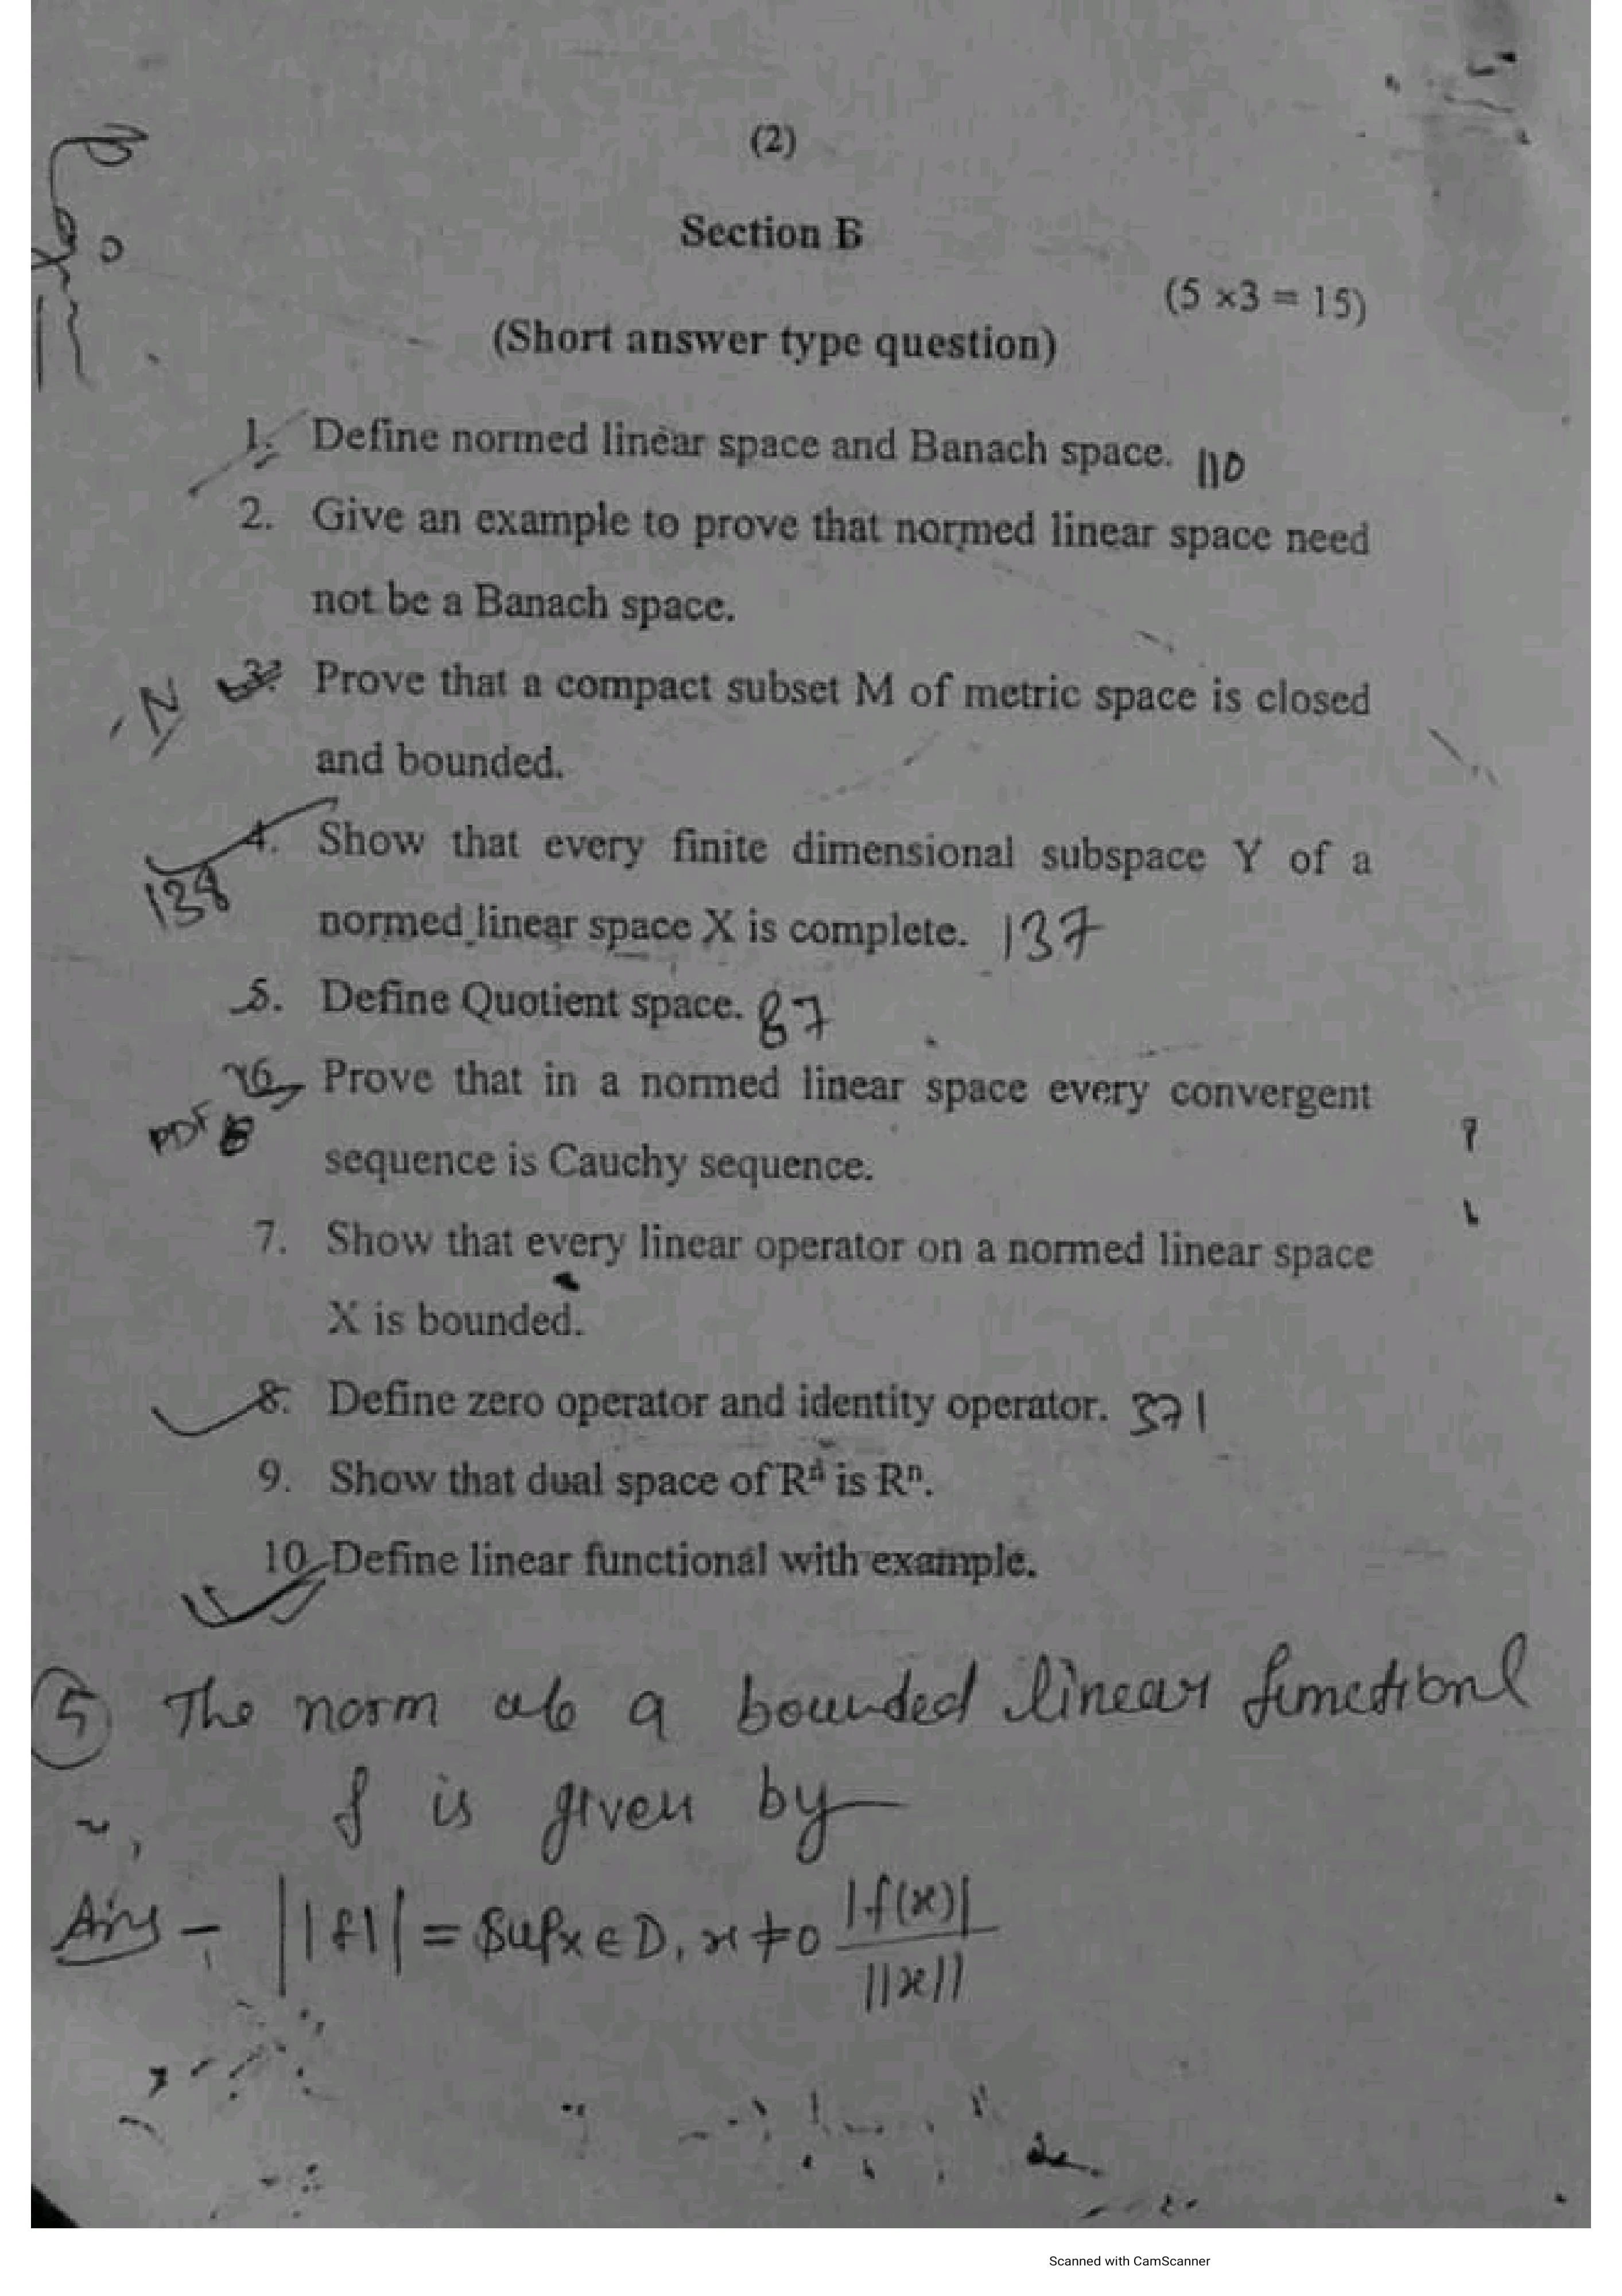 (2)
Section B
(5 ×3 = 15)
(Short answer type question)
1. Define normed linear space and Banach space. 110
2. Give an example to prove that normed linear space need
not be a Banach space.
N 3. Prove that a compact subset M of metric space is closed
and bounded.
4. Show that every finite dimensional subspace Y of a
138 normed linear space X is complete. 137
5. Define Quotient space. 87
6. Prove that in a normed linear space every convergent
PDF
sequence is Cauchy sequence.
7. Show that every linear operator on a normed linear space
X is bounded.
8. Define zero operator and identity operator. 371
9. Show that dual space of Rⁿ is Rⁿ.
10. Define linear functional with example.
5 The norm of a bounded linear functional
f is given by
Ans - ||f|| = Sup x ∈ D, x ≠ 0 |f(x)|
||x||
Scanned with CamScanner